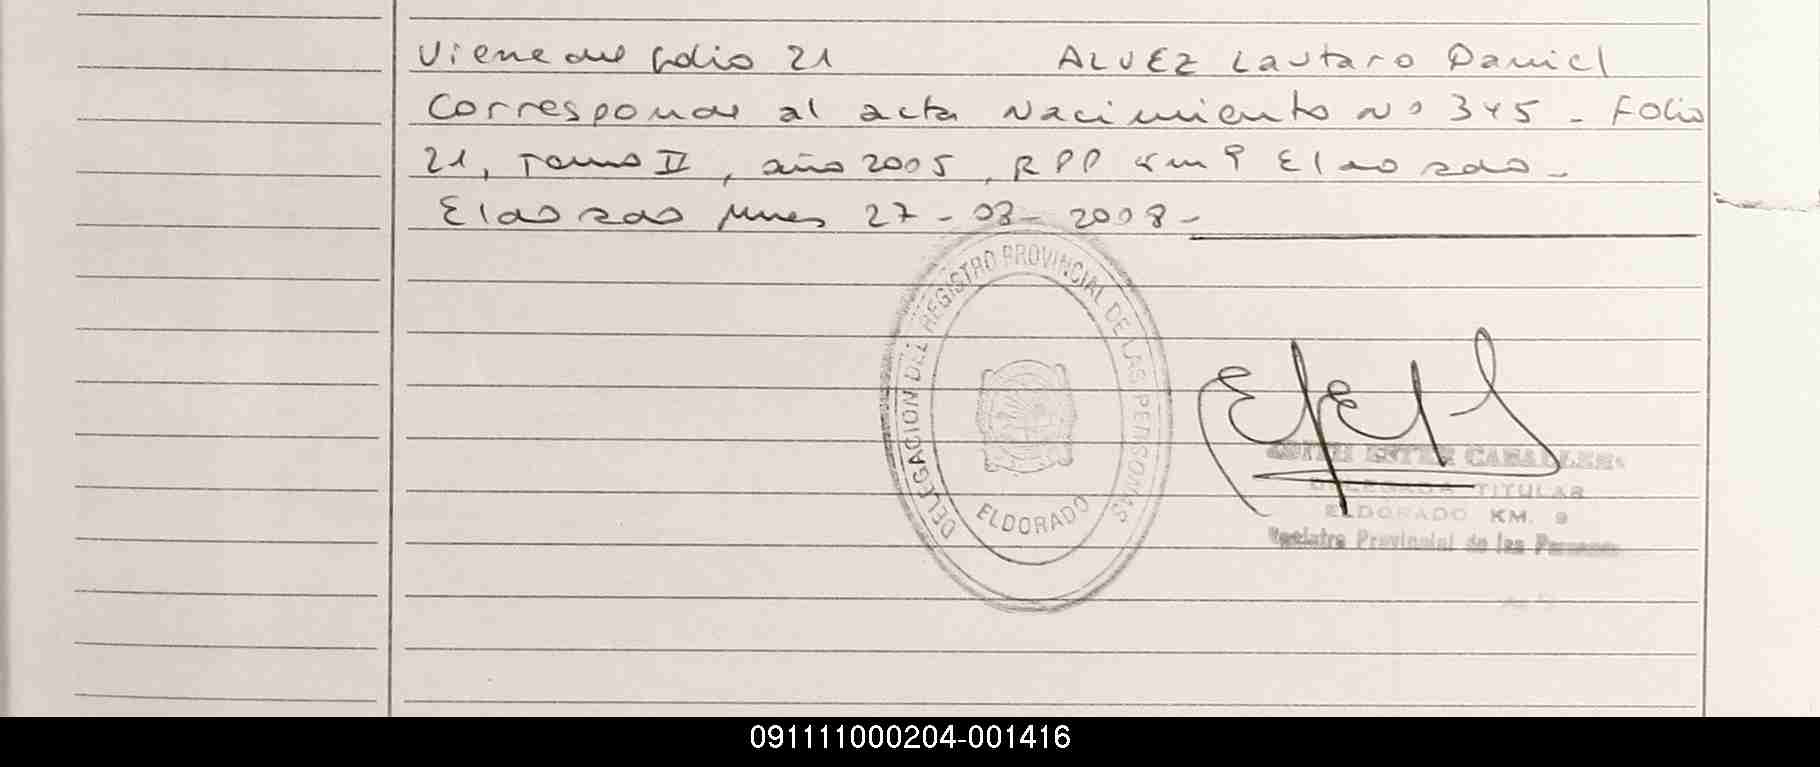 Viene del folio 21 ALVEZ Lautaro Daniel
Corresponde al acta Nacimiento Nº 345 - Folio
21, Tomo II, año 2005, RPP km 9 Eldorado -
Eldorado Mnes 27 - 03 - 2008 -
DELEGACION DEL REGISTRO PROVINCIAL DE LAS PERSONAS
ELDORADO
DELEGADA TITULAR
ELDORADO KM. 9
Registro Provincial de las Personas
091111000204-001416